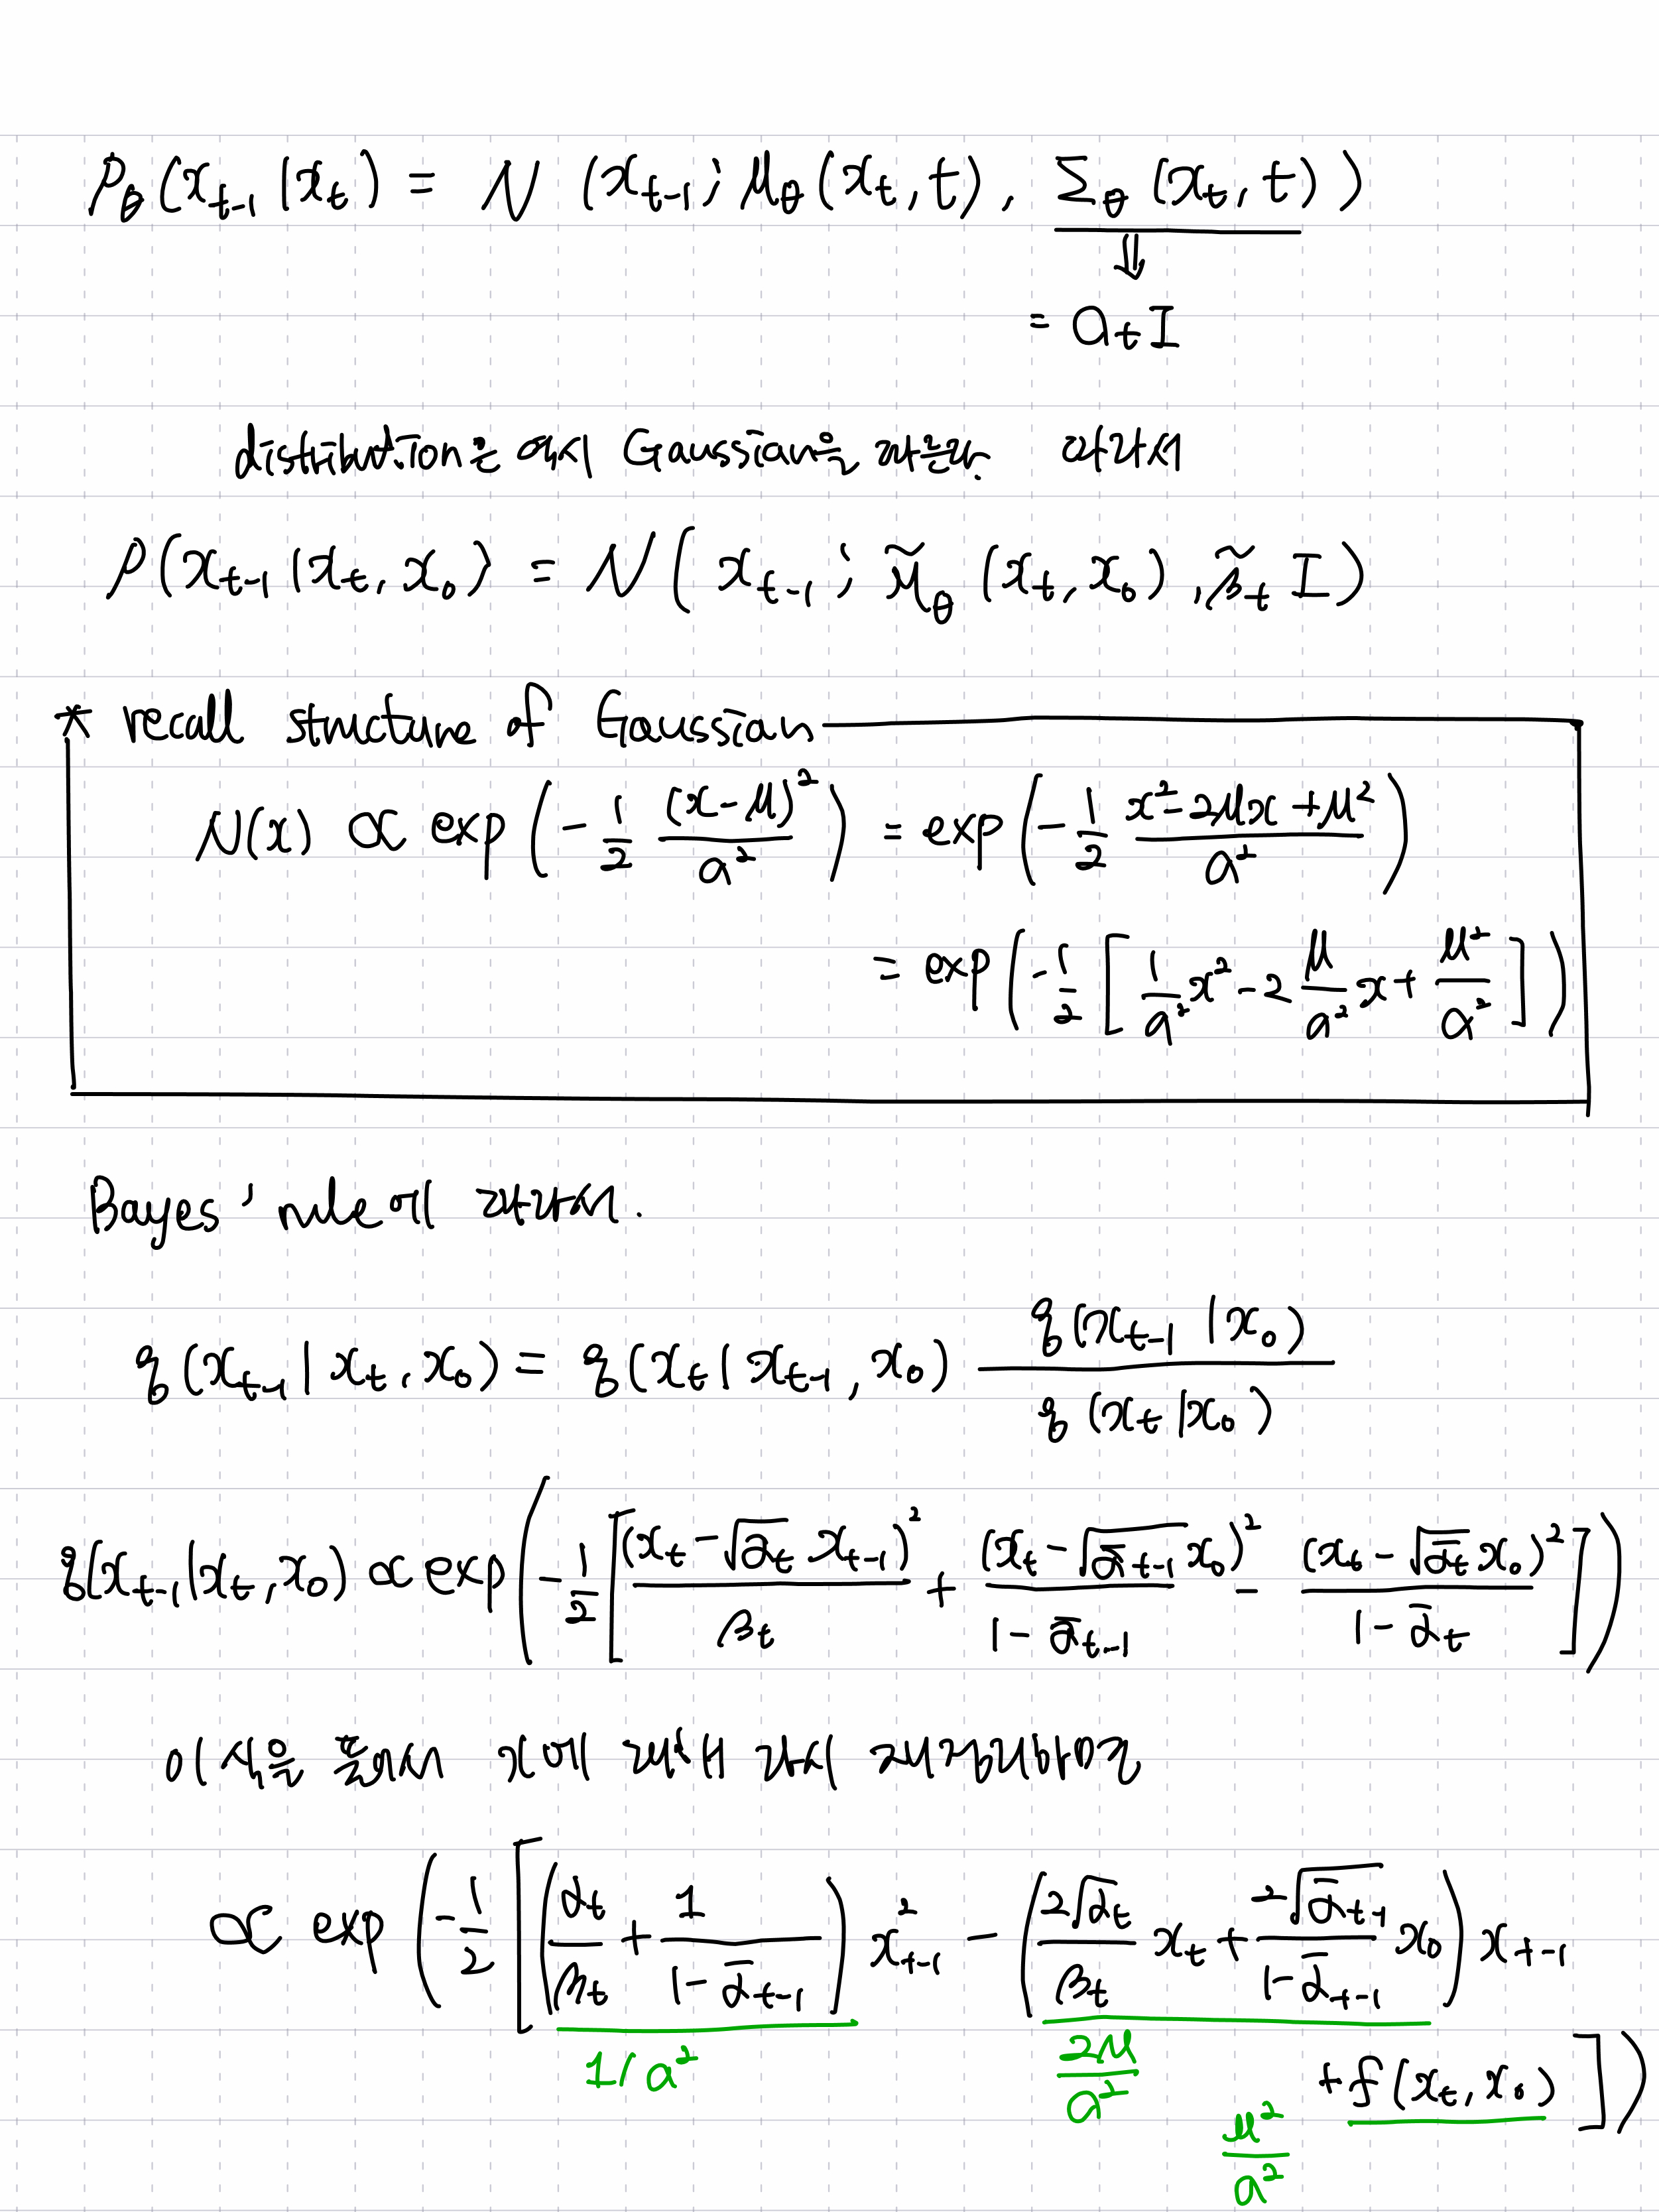 Pθ(x_{t-1}|x_t) = N(x_{t-1}; μθ(x_t, t), Σθ(x_t, t))
⇓
= a_t I
distribution은 역시 Gaussian을 따른다. 따라서
P(x_{t-1}|x_t, x_0) = N(x_{t-1}; μ̃θ(x_t, x_0), β̃_t I)
* recall structure of Gaussian
N(x) ∝ exp(-1/2 (x-μ)²/a²) = exp(-1/2 (x²-2μx+μ²)/a²)
= exp(-1/2 [1/a² x² - 2 μ/a² x + μ²/a²])
Bayes' rule에 따라서.
q(x_{t-1}|x_t, x_0) = q(x_t|x_{t-1}, x_0) q(x_{t-1}|x_0) / q(x_t|x_0)
q(x_{t-1}|x_t, x_0) ∝ exp(-1/2 [(x_t-√α_t x_{t-1})²/β_t + (x_t-√ᾱ_{t-1} x_0)²/(1-ᾱ_{t-1}) - (x_t-√ᾱ_t x_0)²/(1-ᾱ_t)])
이 식을 풀어서 x에
∝ exp(-1/2 [(α_t/β_t + 1/(1-ᾱ_{t-1})) x²_{t-1} - (2√α_t/β_t x_t + 2√ᾱ_{t-1}/(1-ᾱ_{t-1}) x_0) x_{t-1}
1/a² 2μ/a² + f(x_t, x_0)])
μ²/a²